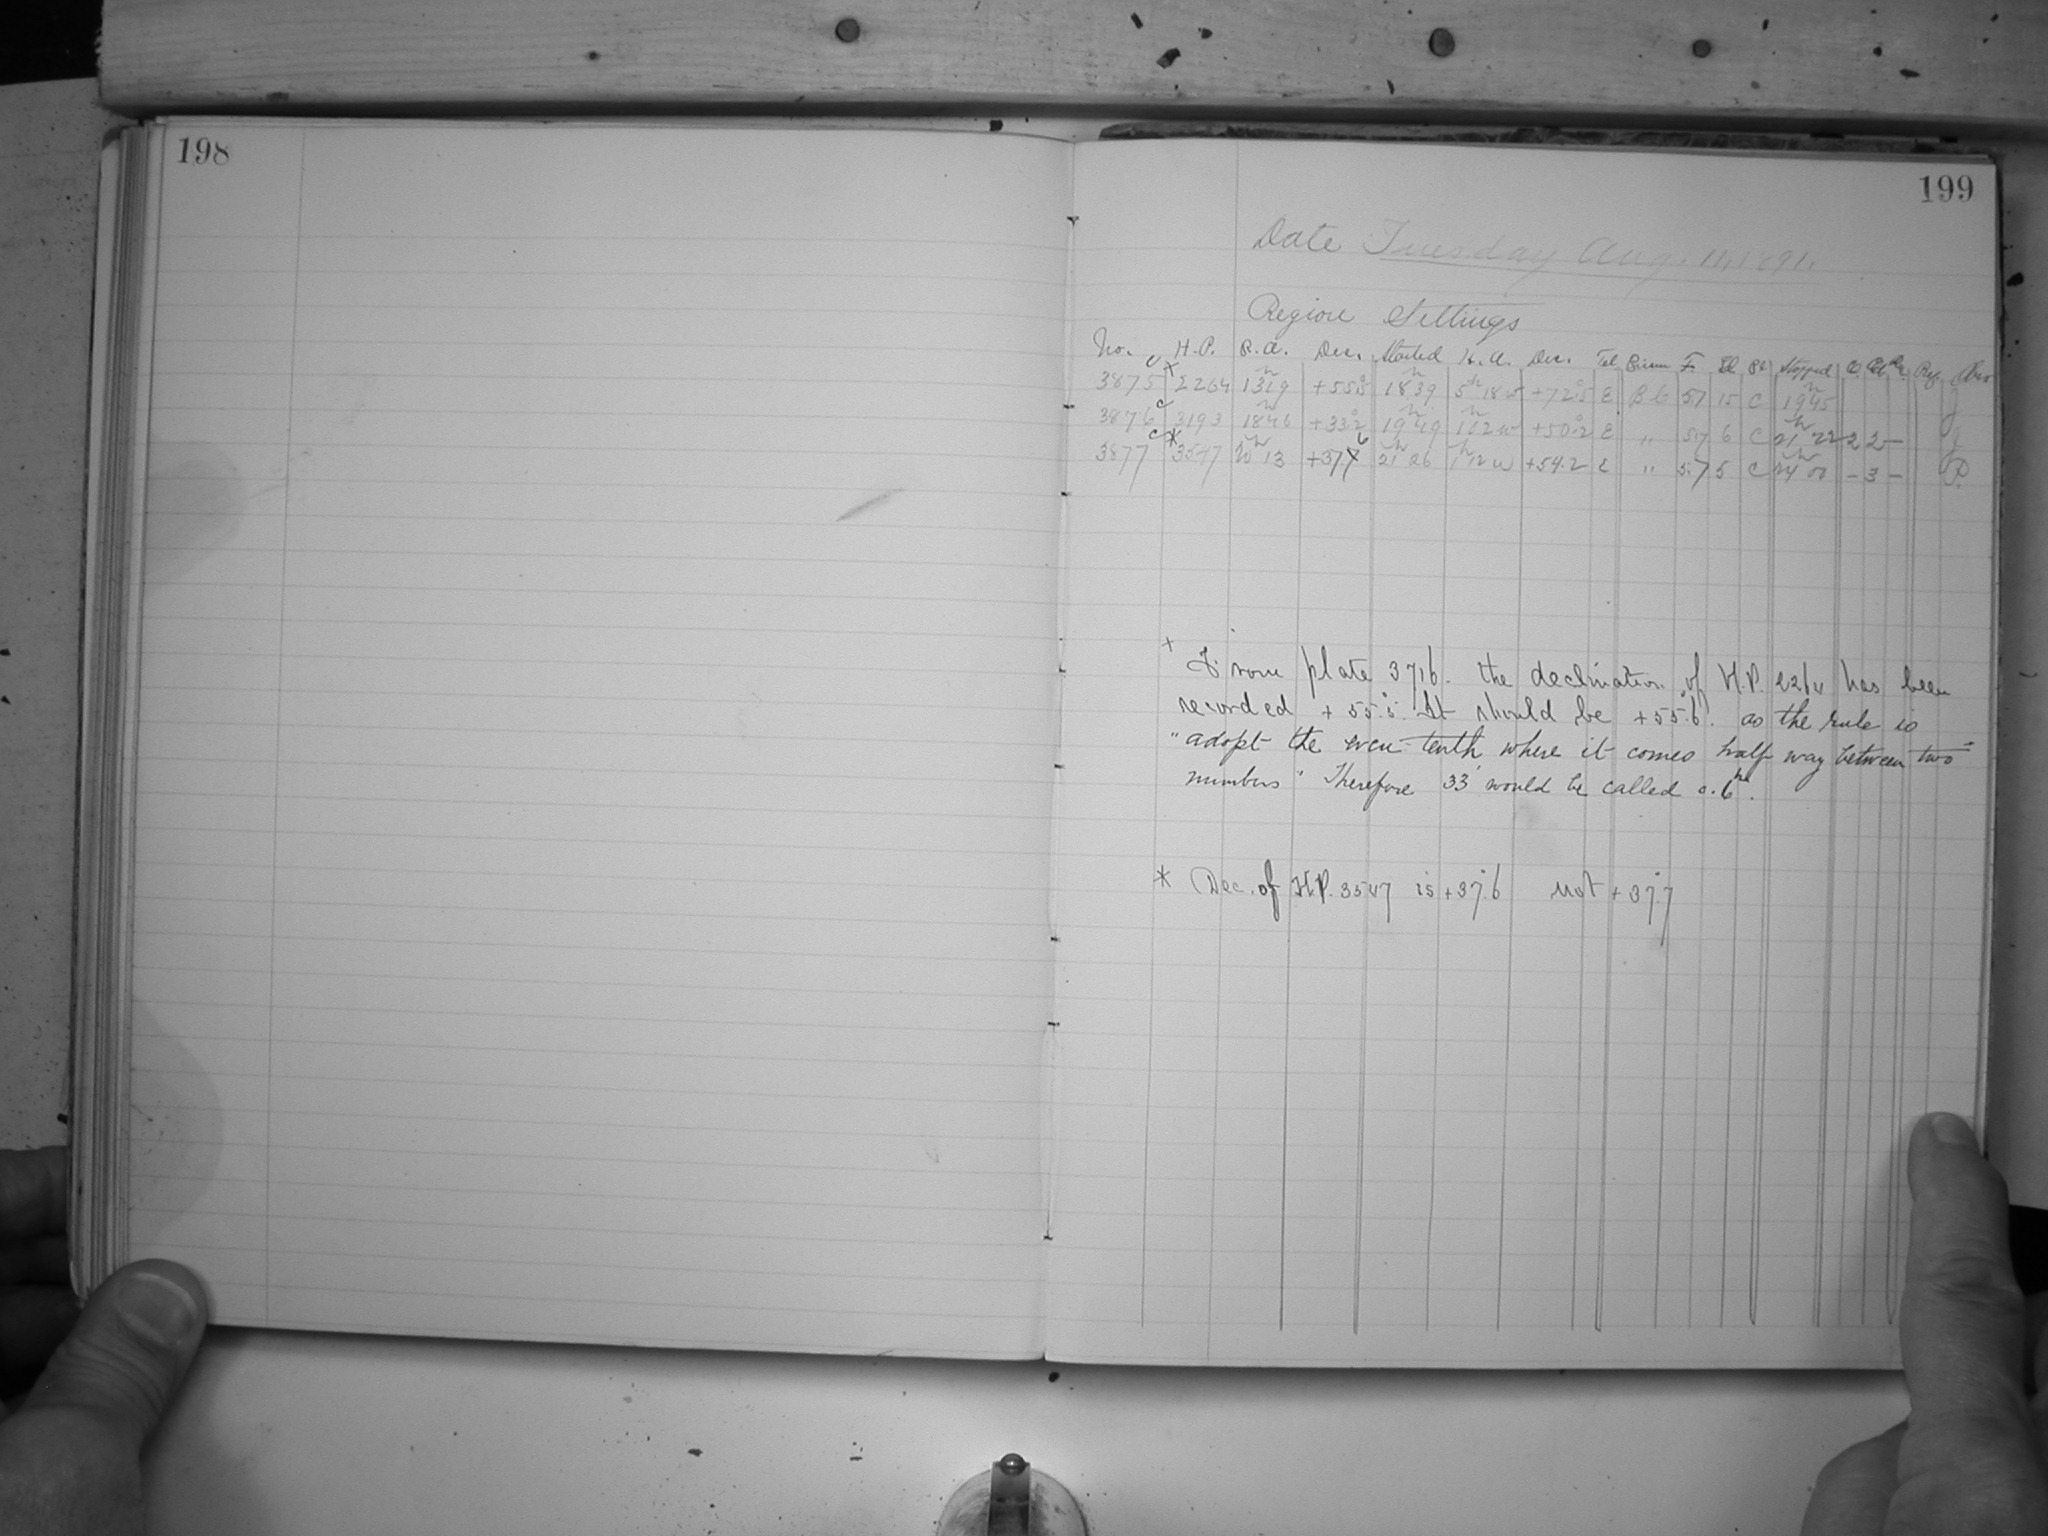 198
199
Date Tuesday Aug. 11, 1891.
Region Settings
No. H.P. R.A. Dec. Started H.A. Dec. Tel Prism F. Ed. Pl. Stopped C. Cl. Reg. Obs.
3875 c x 2264 13h19 +55°.5 18h39 5h 18 w +72°.5 E B6 57 15 C 19h45 J
3876 c 3193 18h46 +33°.2 19h49 1h02 w +50°.2 E " 57 6 C 21h 22 2 2 – J
3877 c * 3547 20h 13 +37.7 6 21h 26 1h 12 w +54.2 E " 5.7 5 C 24h 00 – 3 – P.
+ From plate 3716. the declination of H.P. 2264 has been
recorded +55°.5. It should be +55°.6. as the rule is
"adopt the even-tenth where it comes half way between two
numbers" Therefore 33' would be called 0.6.
* Dec. of H.P. 3547 is +37°.6 not +37°.7